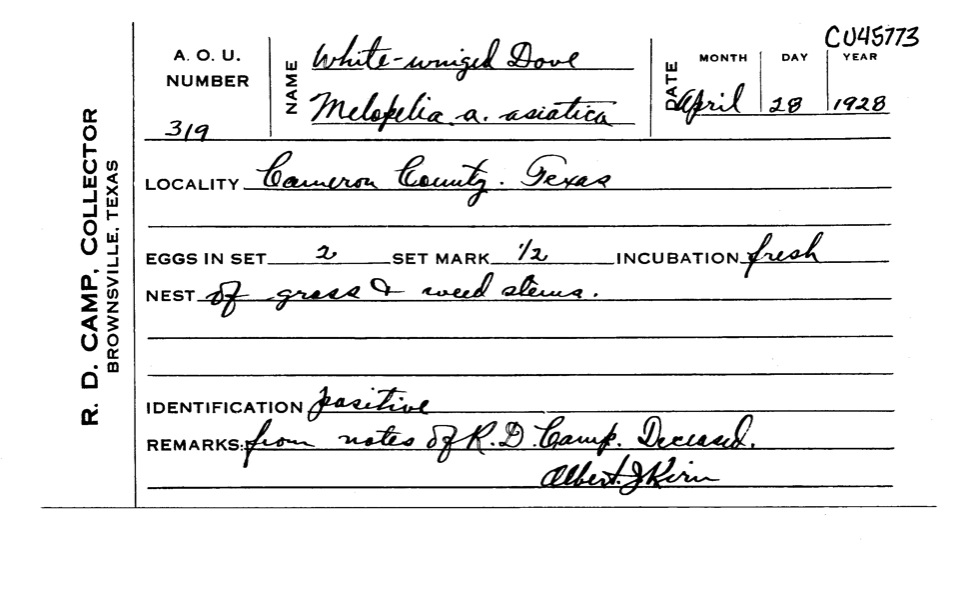 CU45773
R. D. CAMP, COLLECTOR
BROWNSVILLE, TEXAS
A. O. U.
NUMBER
319
NAME White-winged Dove
Melopelia a. asiatica
DATE MONTH DAY YEAR
April 28 1928
LOCALITY Cameron County. Texas
EGGS IN SET 2 SET MARK 1/2 INCUBATION fresh
NEST of grass & weed stems.
IDENTIFICATION positive
REMARKS: from notes of R. D. Camp. Deceased.
Albert J Kirn